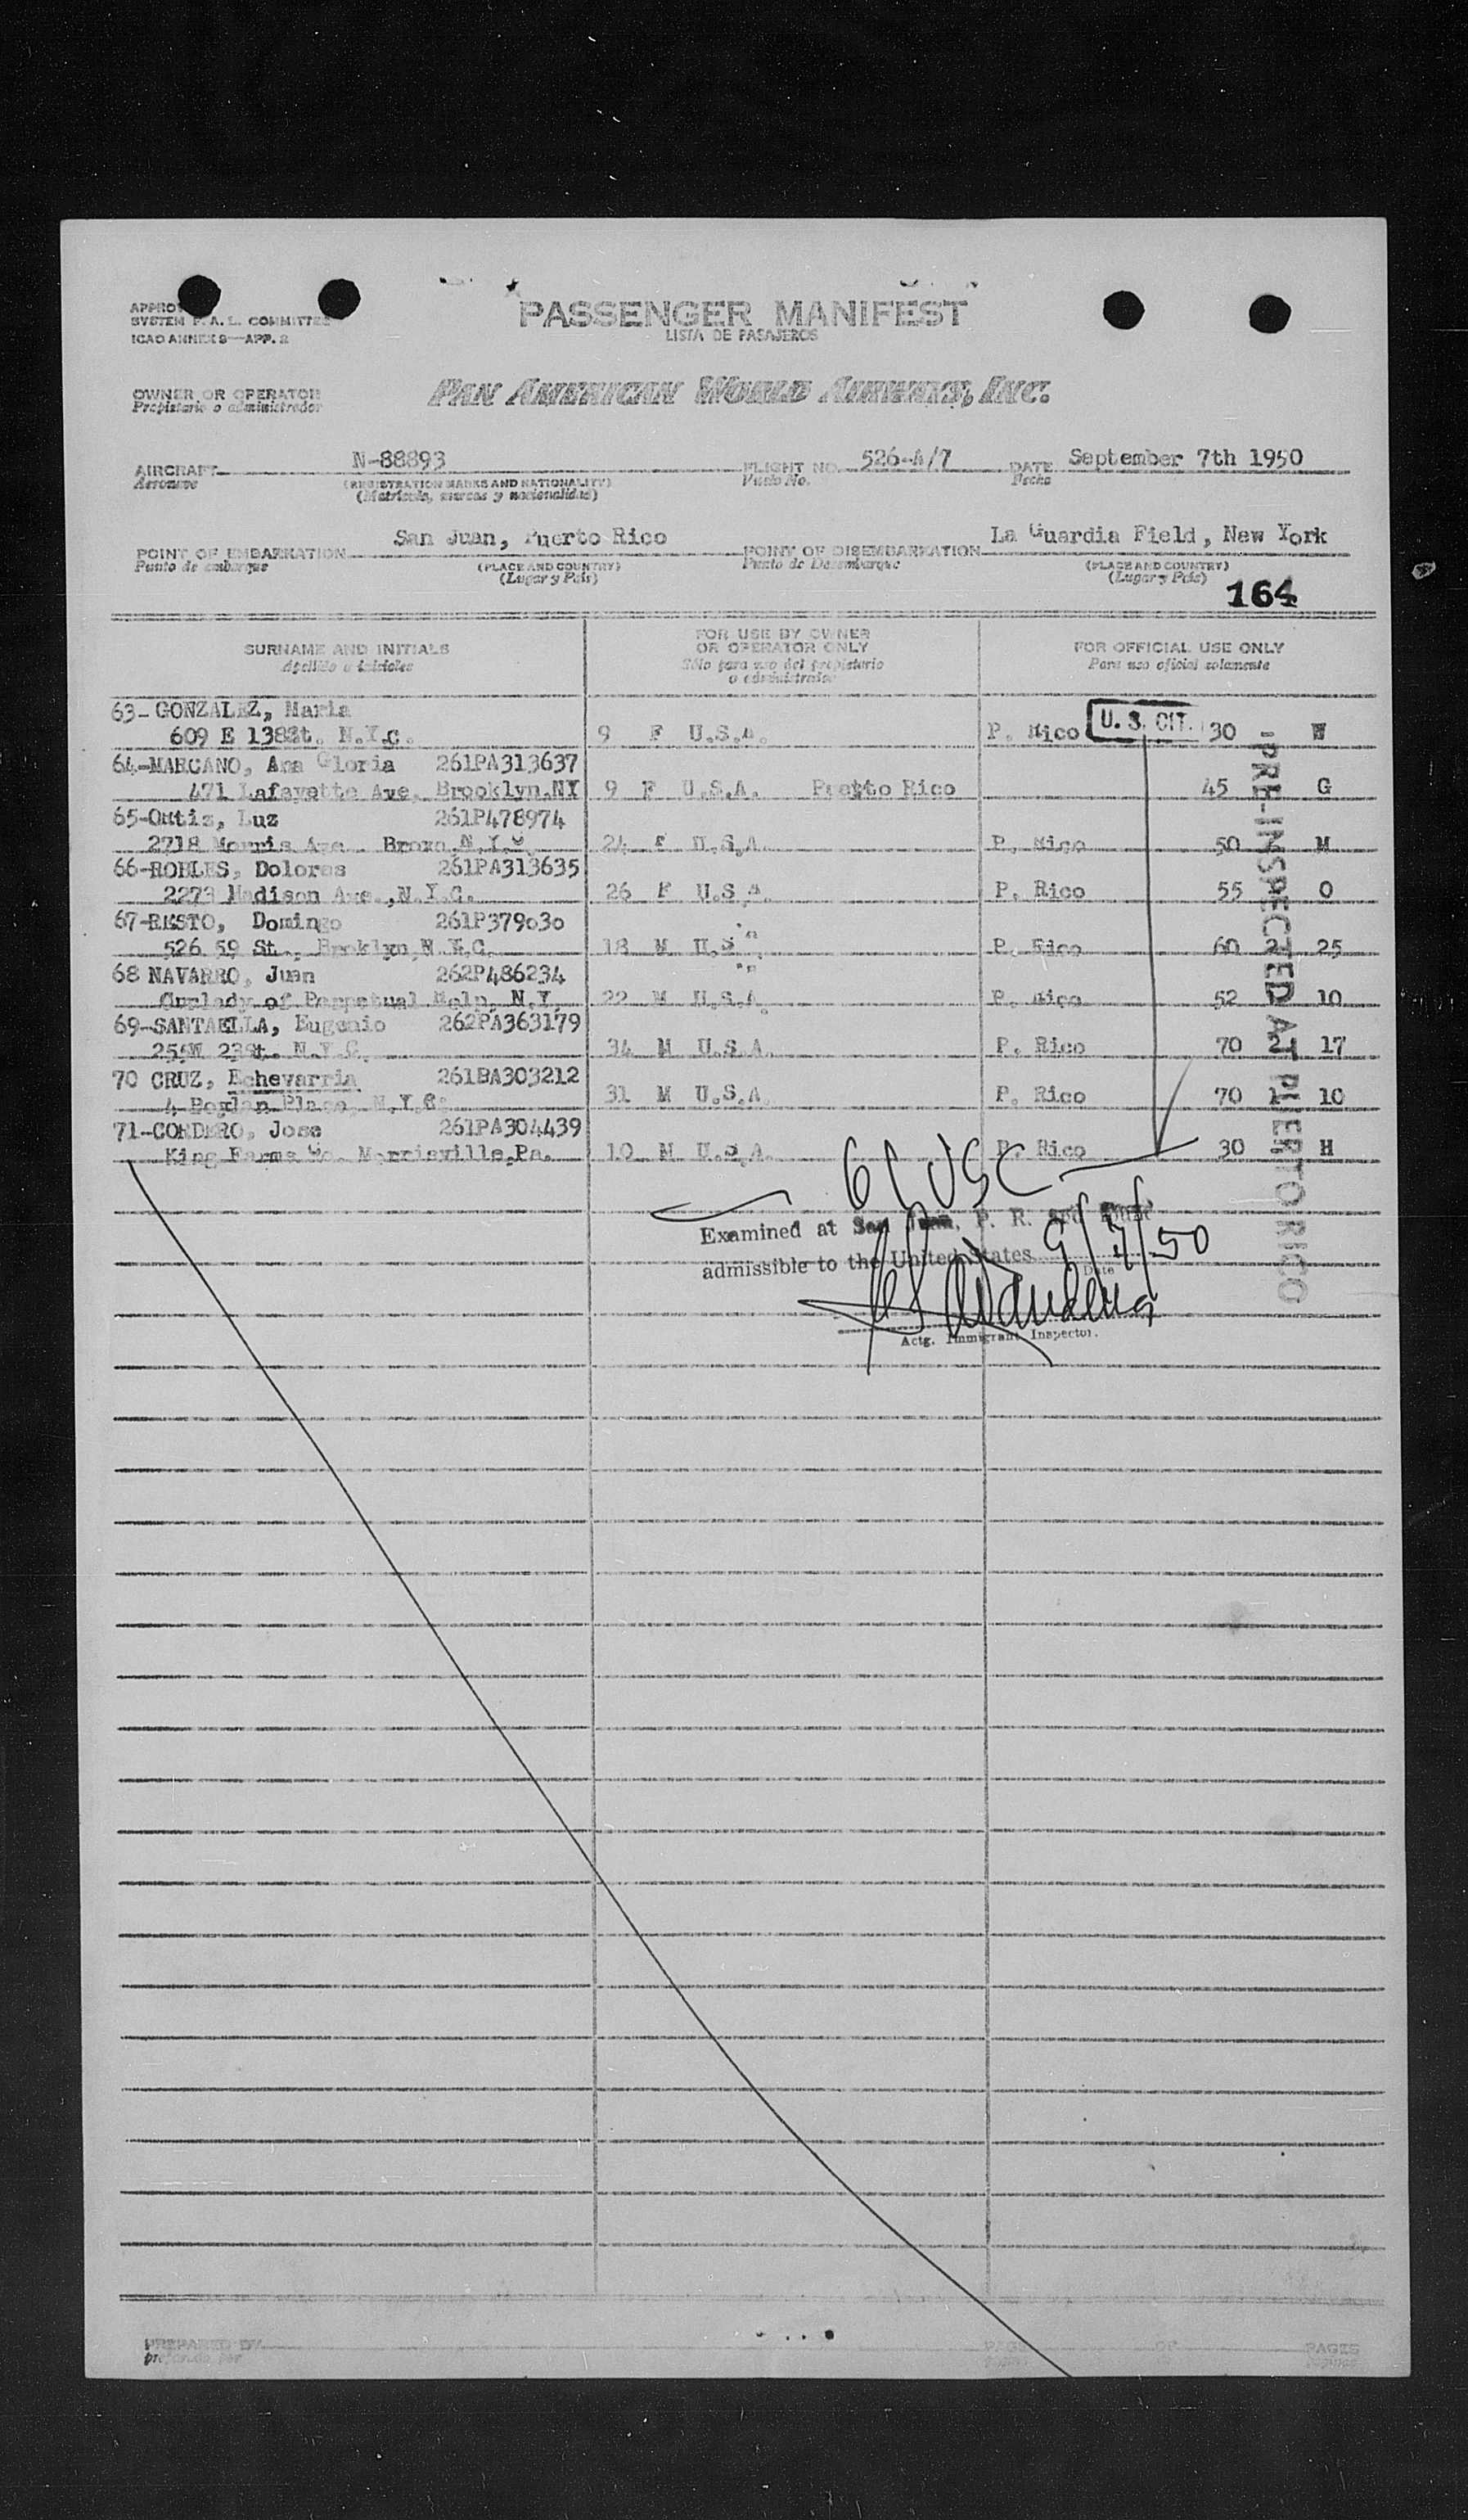 SYSTEM F. A. L. COMMITTEE
ICAO ANNEX 9—APP. 2
PASSENGER MANIFEST
LISTA DE PASAJEROS
OWNER OR OPERATOR
Propietario o administrador
PAN AMERICAN WORLD AIRWAYS, INC.
AIRCRAFT N-88893 FLIGHT NO. 526-A/7 DATE September 7th 1950
Aeronave (REGISTRATION MARKS AND NATIONALITY) Vuelo No. Fecha
(Matrícula, marcas y nacionalidad)
POINT OF EMBARKATION San Juan, Puerto Rico POINT OF DISEMBARKATION La Guardia Field, New York
Punto de embarque (PLACE AND COUNTRY) Punto de Desembarque (PLACE AND COUNTRY)
(Lugar y País) (Lugar y País)
164
SURNAME AND INITIALS
Apellido e iniciales
FOR USE BY OWNER
OR OPERATOR ONLY
Sólo para uso del propietario
o administrador
FOR OFFICIAL USE ONLY
Para uso oficial solamente
63-GONZALEZ, Maria
609 E 138St. N.Y.C. 9 F U.S.A. P. Rico U. S. CIT. 30 W
64-MARCANO, Ana Gloria 261PA313637
471 Lafayette Ave, Brooklyn,NY 9 F U.S.A. Rico 45 G
65- Luz 261P478974
2718 Morris Ave 24 F U.S.A. P. Rico 50 M
66-ROBLES, Dolores 261PA313635
2273 Madison Ave.,N.Y.C. 26 F U.S.A. P. Rico 55 O
67-RESTO, Domingo 261P379030
526 59 St., N.Y.C. 18 M U.S P. Rico 60 2 25
68 NAVARRO, Juan 262P486234
Ourlady of Perpetual Help, N.Y. 22 M U.S.A. P. Rico 52 10
69-SANTAELLA, Eugenio 262PA363179
23St. N.Y.C. 34 M U.S.A. P. Rico 70 2 17
70 CRUZ, Echevarria 261BA303212
4 Place, N.Y.C. 31 M U.S.A. P. Rico 70 1 10
71-CORDERO, Jose 261PA304439
King Farms Co. Morrisville,Pa. 10 M U.S.A. P. Rico 30 H
PRE-INSPECTED AT PUERTO RICO
USC
Examined at San Juan, P. R. and found
admissible to the United States 9/7/50
Date
Actg. Immigrant Inspector.
PREPARED BY PAGE OF PAGES